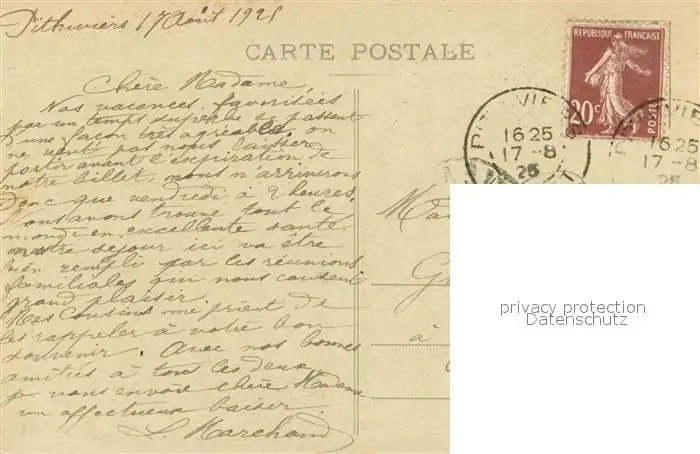 Pithiviers 17 Août 1925
CARTE POSTALE
REPUBLIQUE FRANÇAISE
20c
POSTES
PITHIVIERS
16 25
17 - 8
25
16 25
17 - 8
25
Chère Madame,
Nos vacances, favorisées
par un temps superbe se passent
d'une façon très agréable. on
ne veut pas nous laisser
partir avant l'expiration de
notre billet, nous n'arriverons
donc que vendredi à 2 heures.
Nous avons trouvé tout le
monde en excellente santé.
notre séjour ici va être
bien rempli par les réunions
familiales qui nous causent
grand plaisir.
Mes cousins me prient de
les rappeler à votre bon
souvenir. Avec nos bonnes
amitiés à tous les deux,
je vous envoie chère Madame
un affectueux baiser.
L. Marchand
à
privacy protection
Datenschutz